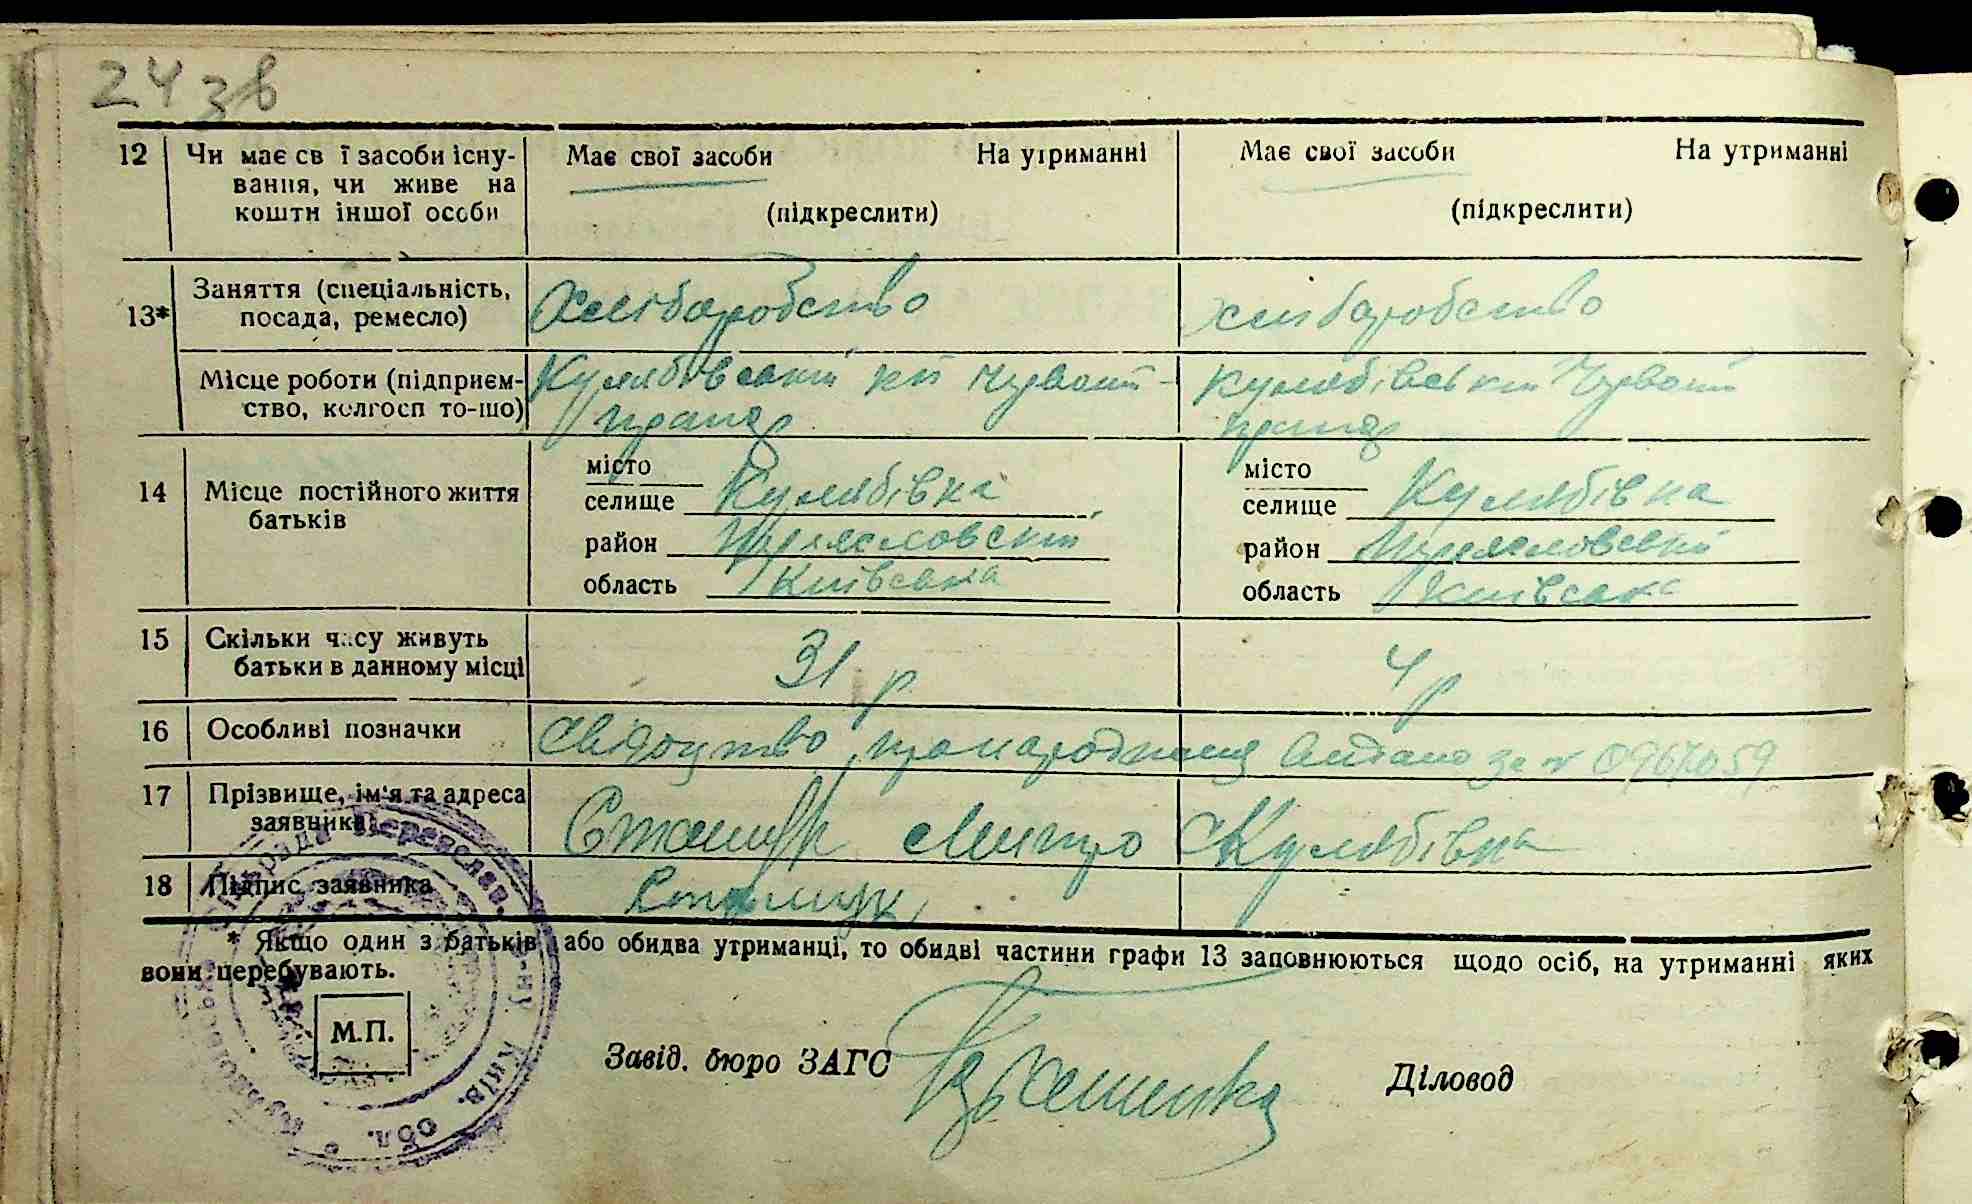 24 зв
12 Чи має св ї засоби існу- Має свої засоби На утриманні Має свої засоби На утриманні
вання, чи живе на
кошти іншої особи (підкреслити) (підкреслити)
13* Заняття (спеціальність, Хлібаробство хлибаробство
посада, ремесло)
Місце роботи (підприєм- Кулябівський Червоний Кулябівський Червоний
ство, колгосп то-що) прапор прапор
місто місто
14 Місце постійного життя селище Кулябівка селище Кулябівка
батьків район район
область Київська область Київська
15 Скільки часу живуть 31 р 4 р
батьки в данному місці
16 Особливі позначки Свідоцтво про народження видано за №
17 Прізвище, ім'я та адреса
заявника Митро Кулябівка
18 Підпис заявника
* Якщо один з батьків або обидва утриманці, то обидві частини графи 13 заповнюються щодо осіб, на утриманні яких
вони перебувають.
М.П.
Завід. бюро ЗАГС Діловод
Переяслав. р-ну Київ. обл.